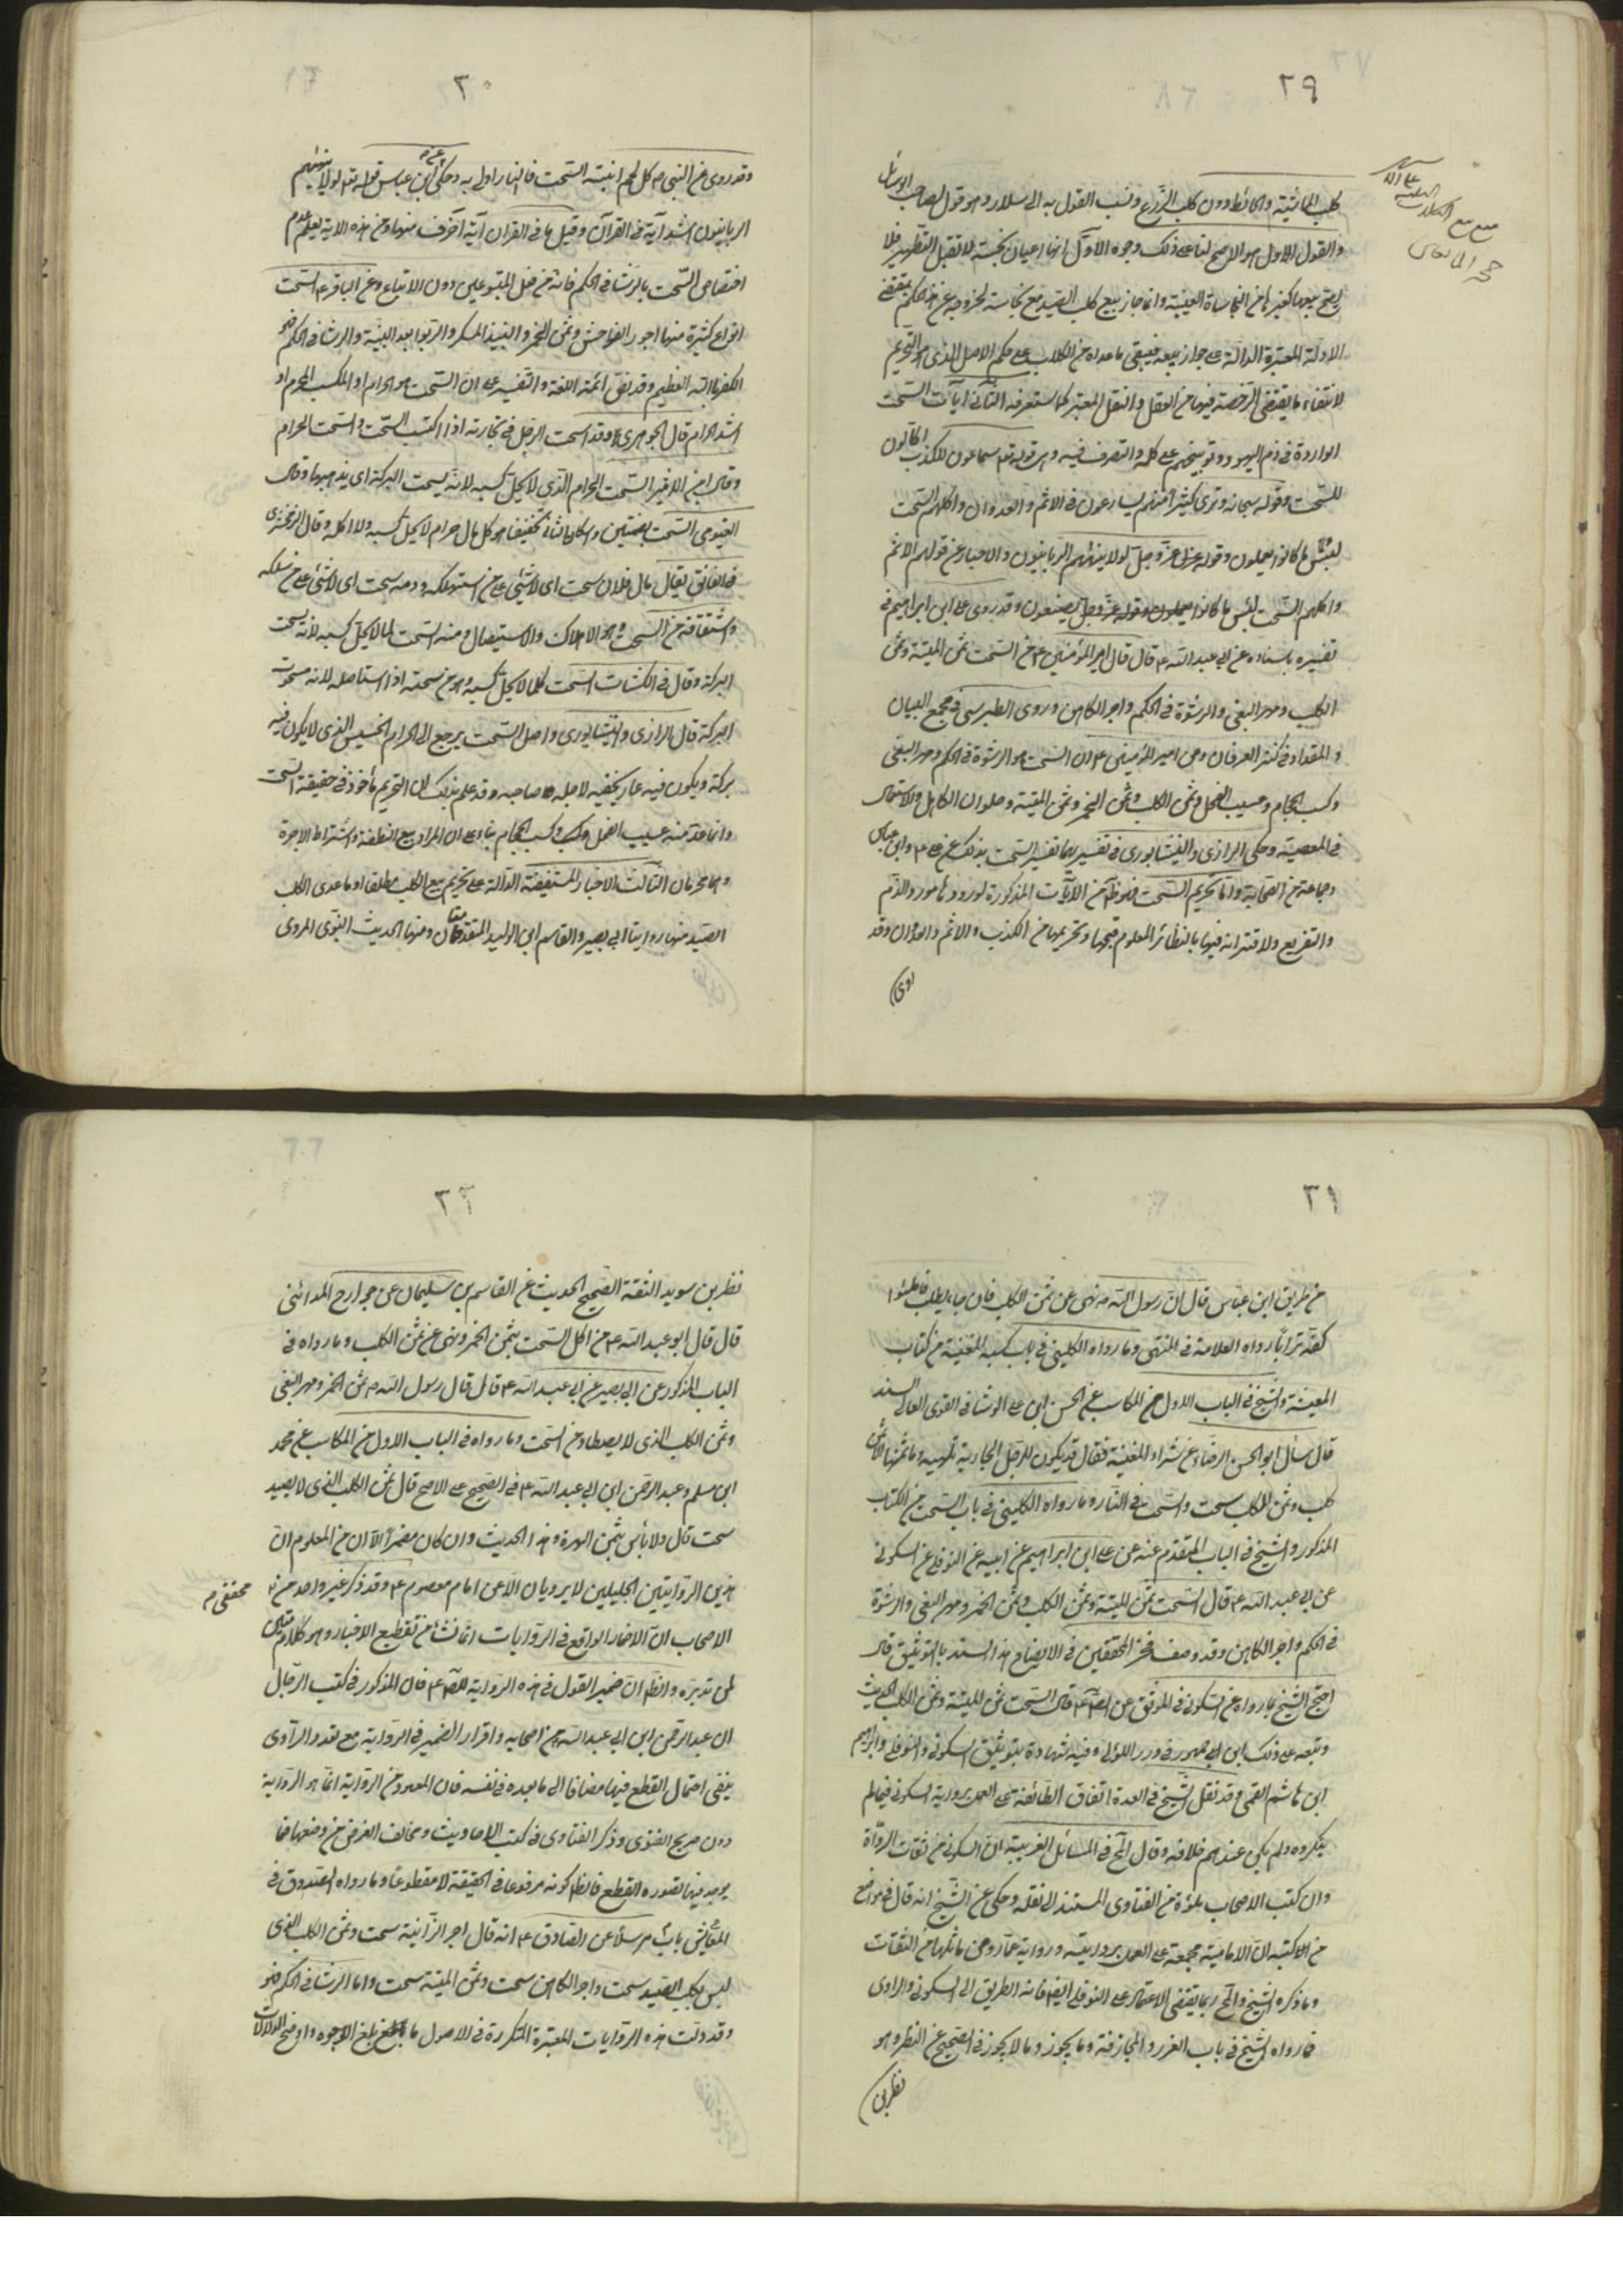 ٢٩
كلب الماشية والحائط دون كلب الزرع ونسب القول به الى سلار وهو قول لصاحب الوسائل
والقول الاول هو الاصح لنا على ذلك وجوه الاول انها اعيان نجسة لا تقبل التطهير فلا
يصح بيعها كغيرها من النجاسات العينية وانما جاز بيع كلب الصيد مع نجاسته لخروجه عن هذا الحكم بمقتضى
الادلة المعتبرة الدالة على جواز بيعه فيبقى ما عداه من الكلاب على حكم الاصل الذى هو التحريم
لانتفاء ما يقتضى الرخصة فيها من العقل والنقل المعتبر كما ستعرفه الثانى آيات السحت
الواردة فى ذم اليهود وتوبيخهم على كله والتصرف فيه وهى قوله تع سماعون للكذب اكالون
للسحت وقوله سبحانه وترى كثيرا منهم يسارعون فى الاثم والعدوان واكلهم السحت
لبئس ما كانوا يعملون وقوله عز وجل لولا ينهيهم الربانيون والاحبار عن قولهم الاثم
واكلهم السحت لبئس ما كانوا يصنعون وقد روى على ابن ابراهيم فى
تفسيره باسناده عن ابي عبد الله ع قال قال امير المؤمنين ع من السحت ثمن الميتة وثمن
الكلب ومهر البغى والرشوة فى الحكم واجر الكاهن وروى الطبرسى فى مجمع البيان
والمقداد فى كنز العرفان وعن امير المؤمنين ع ان السحت هو الرشوة فى الحكم ومهر البغى
وكسب الحجام وعسيب الفحل وثمن الكلب وثمن الخمر وثمن الميتة وحلوان الكاهن والاستعمال
فى المعصية وحكى الرازى والنيشابورى فى تفسيرهما تفسير السحت بذلك عن على ع وابن عباس
وجماعة من الصحابة واما تحريم السحت فظ من الآيات المذكورة لورودها مورد الذم
والتقريع ولاقترانه فيها بالنظائر المعلوم قبحها وتحريمها من الكذب والاثم والعدوان وقد
روى
٣٠
وقد روى عن النبي ص كل لحم انبته السحت فالنار اولى به وحكى عن ابن عباس قوله تع لولا ينهيهم
الربانيون اشد آية فى القرآن وقيل ما فى القران آية اخوف منها ومن هذه الاية يعلم عدم
اختصاص السحت بالرشا فى الحكم فانه من فعل المتبوعين دون الاتباع وعن الباقر ع السحت
انواع كثيرة منها اجور الفواحش وثمن الخمر والنبيذ المسكر والربوا بعد البينة والرشا فى الحكم فهو
الكفر بالله العظيم وقد نص ائمة اللغة والتفسير على ان السحت هو الحرام او المكسب المحرم او
اشد الحرام قال الجوهرى وقد اسحت الرجل فى تجارته اذا اكتسب السحت والسحت الحرام
وقال ابن الاثير السحت الحرام الذى لا يحل كسبه لانه يسحت البركة اى يذهبها وقال
الفيومى السحت بضمتين واسكان الثانى تخفيفا هو كل مال حرام لا يحل كسبه ولا اكله وقال الزمخشرى
فى الفائق يقال مال فلان سحت اى لا شيئ على من استهلكه ودمه سحت اى لا شيئ على من سفكه
واشتقاقه من السحت وهو الاهلاك والاستيصال ومنه السحت لما لا يحل كسبه لانه يسحت
البركة وقال فى الكشاف السحت كلما لا يحل كسبه وهو من سحته اذا استاصله لانه مسحوت
البركة قال الرازى والنيشابورى واصل السحت يرجع الى الحرام الخسيس الذى لا يكون فيه
بركة ويكون فيه عار يخفيه لاجله صاحبه وقد علم بذلك ان التحريم مأخوذ فى حقيقة السحت
وانما عد منه عسيب الفحل وكسب الحجام بناء على ان المراد بيع النطفة واشتراط الاجرة
وهما محرمان الثالث الاخبار المستفيضة الدالة على تحريم بيع الكلب مطلقا او ما عدى الكلب
الصيد منها روايتا ابى بصير والقاسم ابن الوليد المتقدمتان ومنها الحديث النبوى المروى
٣١
من طريق ابن عباس قال ان رسول الله ص نهى عن ثمن الكلب فان جاء يطلب فاطمئوا
كفه ترابا رواه العلامة فى المنتهى وما رواه الكلينى فى باب كسب المغنية من كتاب
المعيشة والشيخ فى الباب الاول من المكاسب عن الحسن ابن على الوشا فى القوى العالى السند
قال سأل ابو الحسن الرضا ع عن شراء المغنية فقال قد يكون للرجل الجارية تلهيه وما ثمنها الا ثمن
كلب وثمن الكلب سحت والسحت فى النار وما رواه الكلينى فى باب السحت من الكتاب
المذكور والشيخ فى الباب المتقدم عنه عن على ابن ابراهيم عن ابيه عن النوفلى عن السكونى
عن ابي عبد الله ع قال السحت ثمن الميتة وثمن الكلب وثمن الخمر ومهر البغى والرشوة
فى الحكم واجر الكاهن وقد وصف فخر المحققين فى الايضاح هذا السند بالتوثيق قال
احتج الشيخ بما رواه عن السكونى فى الموثق عن الصادق ع قال السحت ثمن الميتة وثمن الكلب الحديث
وتبعه على ذلك ابن ابي جمهور فى درر اللؤلى وفيه شهادة بتوثيق السكونى والنوفلى وابراهيم
ابن هاشم القمى وقد نقل الشيخ فى العدة اتفاق الطائفة على العمل برواية السكونى فيما لم
ينكروه ولم يكن عندهم خلافه وقال المح فى المسائل الغريبة ان السكونى من ثقات الرواة
وان كتب الاصحاب مملوءة من الفتاوى المستندة الى نقله وحكى عن الشيخ انه قال فى مواضع
من كتبه ان الامامية مجمعة على العمل بروايته ورواية عمار ومن ماثلهما من الثقات
وما ذكره الشيخ والمح ربما يقتضى الاعتماد على النوفلى ايضا فانه الطريق الى السكونى والراوى
فما رواه الشيخ فى باب الغرر والمجازفة وما يجوز وما لا يجوز فى الصحيح عن النظر وهو
نظر بن
٣٢
نظر بن سويد الثقة الصحيح الحديث عن القاسم بن سليمان عن جراح المدائنى
قال قال ابو عبد الله ع من اكل السحت ثمن الخمر ونهى عن ثمن الكلب وما رواه فى
الباب المذكور عن ابي بصير عن ابي عبد الله ع قال قال رسول الله ص ثمن الخمر ومهر البغى
وثمن الكلب الذى لا يصطاد من السحت وما رواه فى الباب الاول من المكاسب عن محمد
ابن مسلم وعبد الرحمن ابن ابي عبد الله ع فى الصحيح على الاصح قال ثمن الكلب الذى لا يصيد
سحت قال ولا بأس بثمن الهرة وهذا الحديث وان كان مضمرا الا ان من المعلوم ان
هذين الراويين الجليلين لا يرويان الا عن امام معصوم ع وقد ذكر غير واحد من محققى
الاصحاب ان الاضمار الواقع فى الروايات انما نشأ من تقطيع الاخبار وهو كلام متين
لمن تدبره والظ ان ضمير القول فى هذه الرواية للص ع فان المذكور فى كتب الرجال
ان عبد الرحمن ابن ابي عبد الله من اصحابه وافراد الضمير فى الرواية مع تعدد الراوى
ينفى احتمال القطع فيها مضافا الى ما بعده فى نفسه فان المعهود من الرواية انما هو الرواية
دون صريح الفتوى وذكر الفتاوى فى كتب الاحاديث ومخالف الغرض من وضعها فما
يوجد فيها بصورة القطع فالظ كونه مرفوعا فى الحقيقة لا مقطوعا وما رواه الصدوق فى
المعايش باب مرسلا عن الصادق ع انه قال اجر الزانية سحت وثمن الكلب الذى
ليس بكلب الصيد سحت واجر الكاهن سحت وثمن الميتة سحت واما الرشا فى الحكم فهو
وقد دلت هذه الروايات المعتبرة المتكررة فى الاصول ما بلغ الوجوه واوضح الدلالات